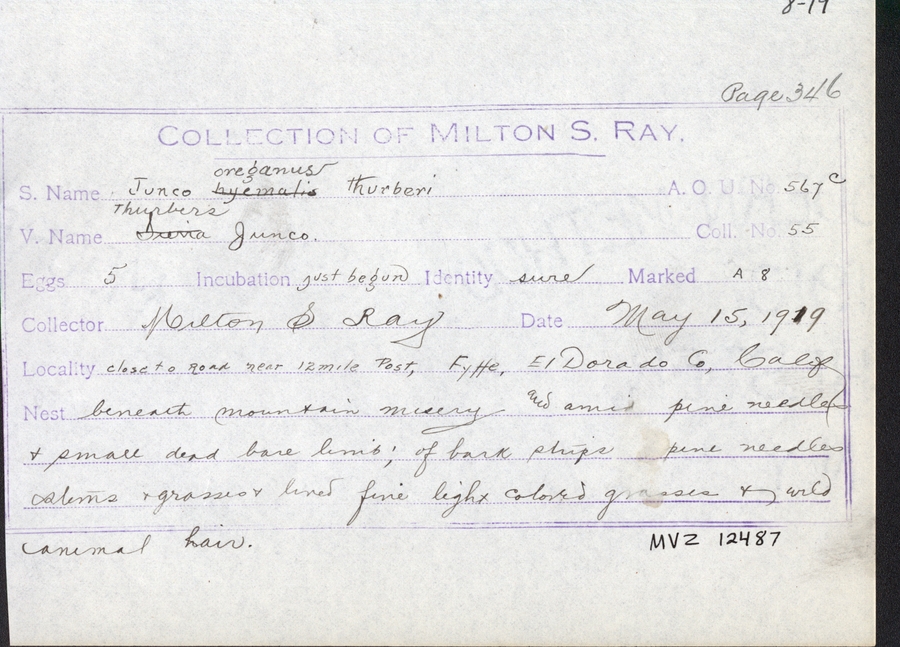 8-19
Page 346
COLLECTION OF MILTON S. RAY.
oreganus
S. Name Junco hyemalis thurberi A. O. U. No. 567c
Thurbers
V. Name Sierra Junco. Coll. No. 55
Eggs 5 Incubation just begun Identity sure Marked A 8
Collector Milton S Ray Date May 15, 1919
Locality close to Road near 12 mile Post, Fyffe, El Dorado Co, Calif
Nest beneath mountain misery and amid pine needles
+ small dead bare limb; of bark strips pine needles
stems + grasses + lined fine light colored grasses + wild
animal hair.
MVZ 12487